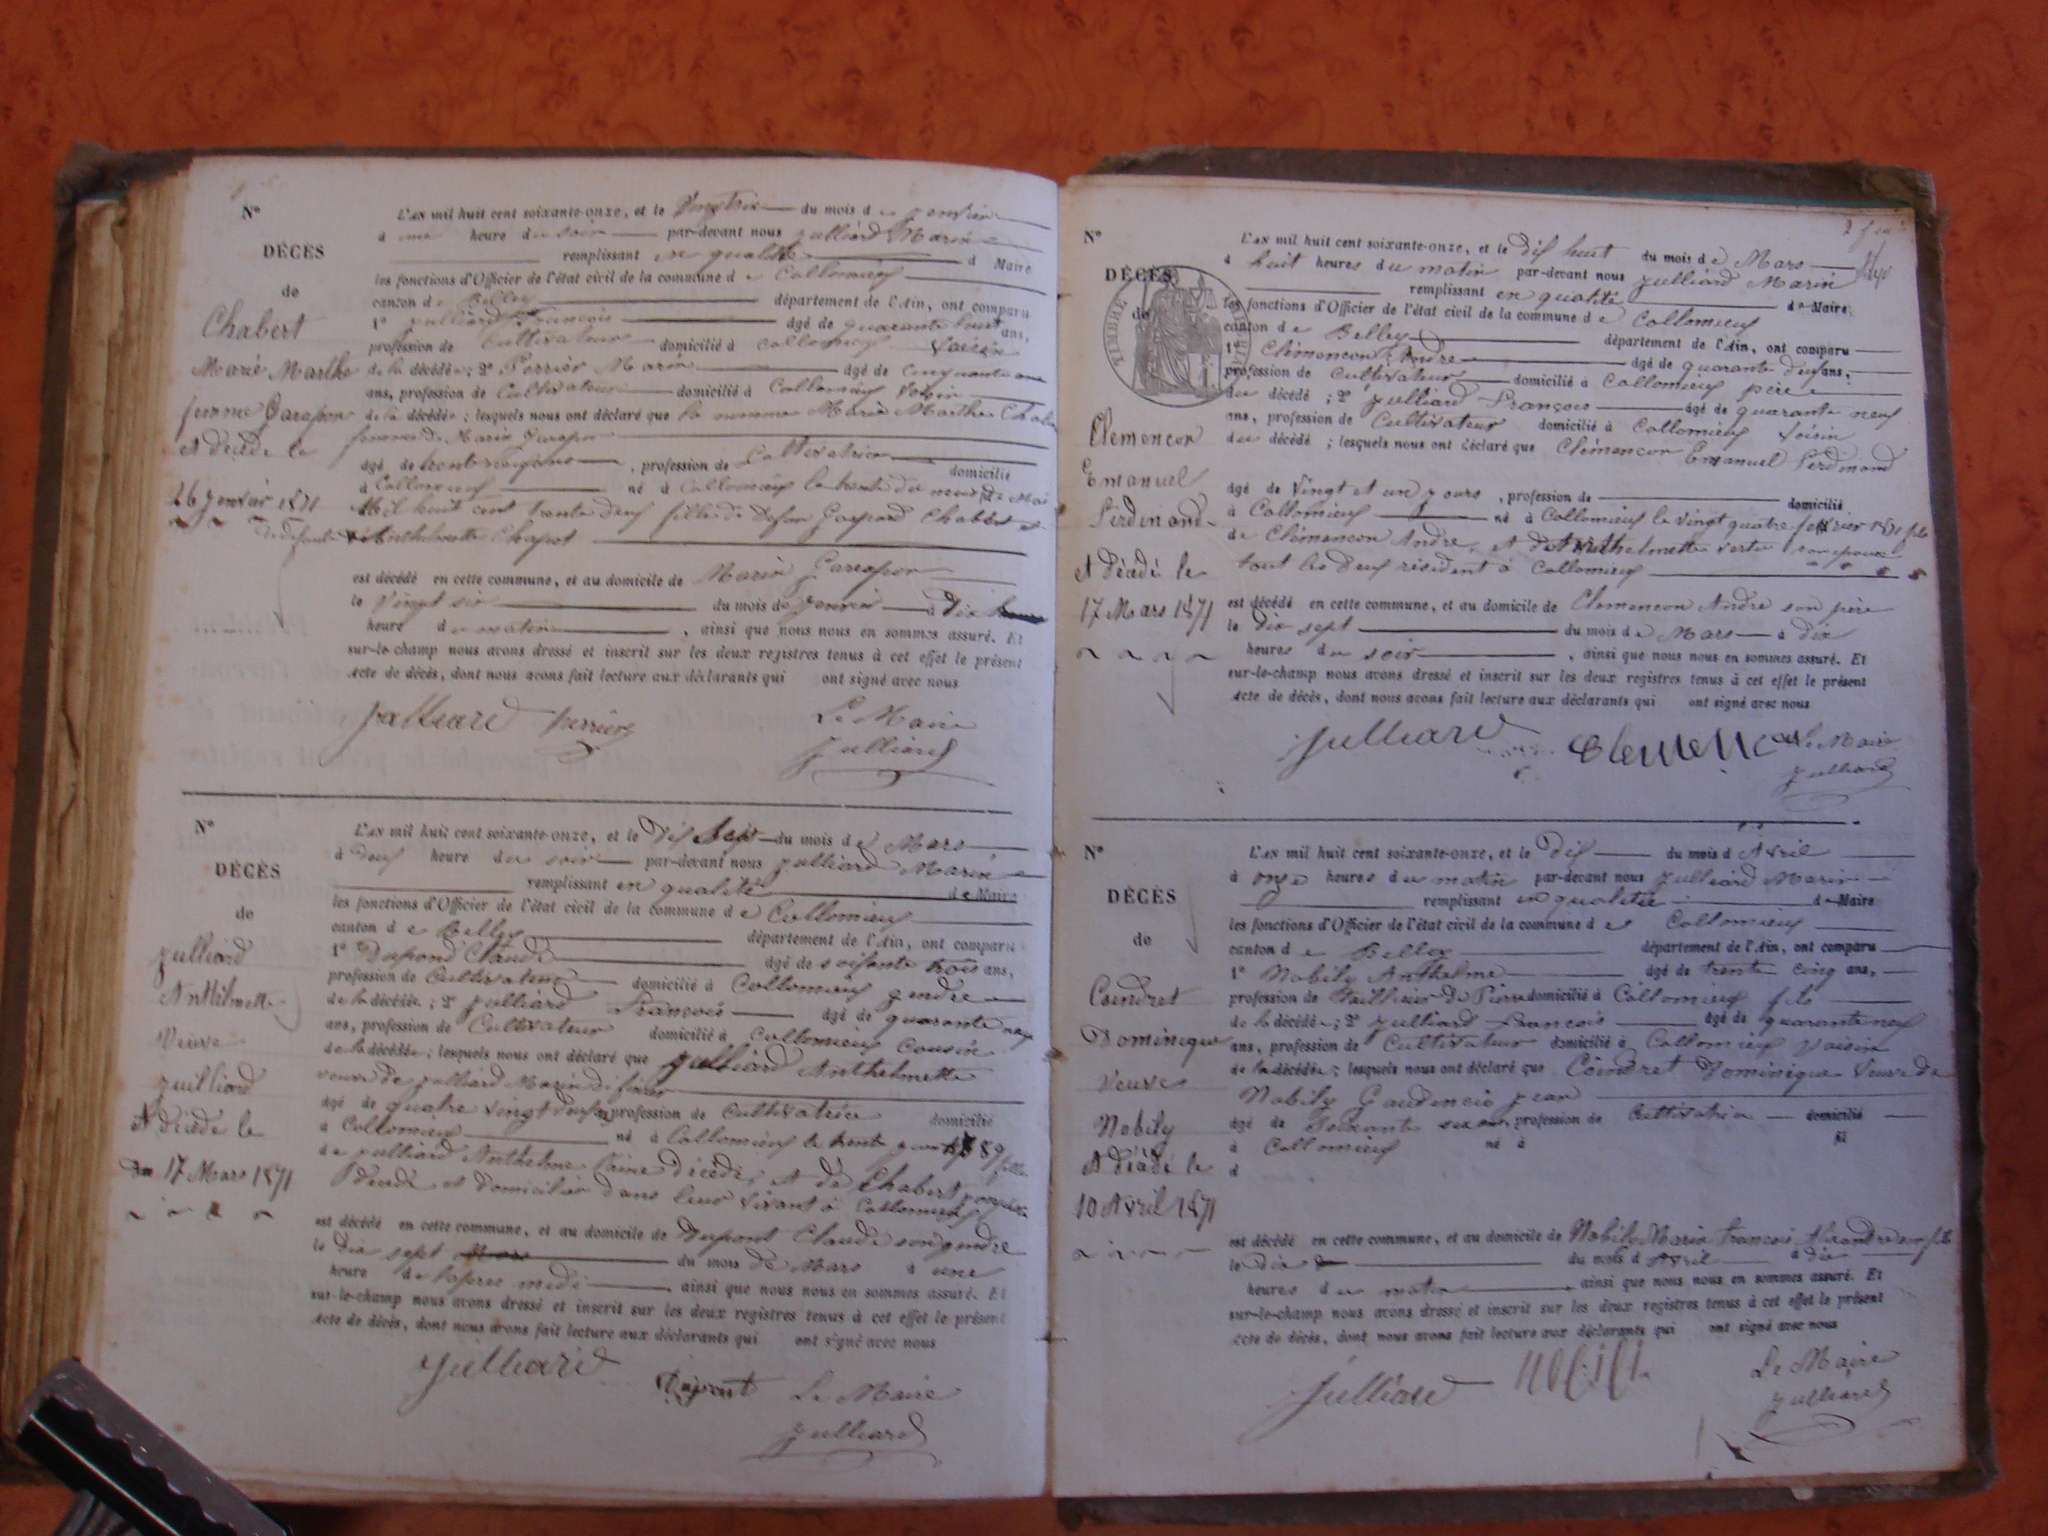 N°
DÉCÈS
de
Chabert
Marie Marthe
femme Garapon
décédé le
26 Janvier 1871
L'an mil huit cent soixante-onze, et le Vingt six du mois de Janvier
à une heure du soir par-devant nous Julliard Marin
remplissant en qualité d Maire
les fonctions d'Officier de l'état civil de la commune de Collomieu
canton de Belley département de l'Ain, ont comparu
1° Julliard François âgé de quarante ans,
profession de Cultivateur domicilié à Collomieu Voisin
de la décédée; 2° Perrier Marin âgé de Cinquante
ans, profession de Cultivateur domicilié à Collomieu Voisin
de la décédée; lesquels nous ont déclaré que la nommée Marie Marthe
femme de Marin Garapon
âgé de profession de Cultivatrice domicilié
à Collomieu né à Collomieu le trente du mois de Mai
Mil huit cent trente deux fille de Defun Gaspard Chabert et
de defunte Anthelmette Chapot
est décédé en cette commune, et au domicile de Marin Garapon
le Vingt six du mois de Janvier à dix
heure du matin, ainsi que nous nous en sommes assuré. Et
sur-le-champ nous avons dressé et inscrit sur les deux registres tenus à cet effet le présent
acte de décès, dont nous avons fait lecture aux déclarants qui ont signé avec nous
Julliard Perrier Le Maire
Julliard
N°
DÉCÈS
de
Julliard
Anthelmette
Veuve
Juilliard
décédé le
17 Mars 1871
L'an mil huit cent soixante-onze, et le Dix sept du mois de Mars
à Deux heure du soir par-devant nous Julliard Marin
remplissant en qualité de Maire
les fonctions d'Officier de l'état civil de la commune de Collomieu
canton de Belley département de l'Ain, ont comparu
1° Dupond Claude âgé de soixante trois ans,
profession de Cultivateur domicilié à Collomieu gendre
de la décédée; 2° Julliard François âgé de quarante neuf
ans, profession de Cultivateur domicilié à Collomieu Cousin
de la décédée; lesquels nous ont déclaré que Julliard Anthelmette
veuve de Julliard Marin
âgé de quatre vingt profession de Cultivatrice domicilié
à Collomieu né à Collomieu le trente 89 fille
de Julliard Anthelme décédé, et de Chabert
décédé et domicilier dans leur vivant à Collomieu
est décédé en cette commune, et au domicile de Dupont Claude son gendre
le Dix sept du mois de Mars à une
heure de l'apres midi ainsi que nous nous en sommes assuré. Et
sur-le-champ nous avons dressé et inscrit sur les deux registres tenus à cet effet le présent
acte de décès, dont nous avons fait lecture aux déclarants qui ont signé avec nous
Julliard Dupont Le Maire
Julliard
N°
DÉCÈS
de
TIMBRE
Clemencon
Emanuel
Ferdinand
décédé le
17 Mars 1871
L'an mil huit cent soixante-onze, et le Dix huit du mois de Mars
à huit heures du matin par-devant nous Julliard Marin
remplissant en qualité de Maire
les fonctions d'Officier de l'état civil de la commune de Collomieu
canton de Belley département de l'Ain, ont comparu
1° Clémencon Andre âgé de quarante deux ans,
profession de Cultivateur domicilié à Collomieu père
du décédé; 2° Julliard François âgé de quarante neuf
ans, profession de Cultivateur domicilié à Collomieu Voisin
du décédé; lesquels nous ont déclaré que Clémencon Emanuel Ferdinand
âgé de Vingt et un jours, profession de domicilié
à Collomieu né à Collomieu le Vingt quatre fevrier 1871 fils
de Clémencon Andre, et d'Anthelmette son epouse
tout les Deux résident à Collomieu
est décédé en cette commune, et au domicile de Clemencon Andre son père
le Dix sept du mois de Mars à dix
heures du soir, ainsi que nous nous en sommes assuré. Et
sur-le-champ nous avons dressé et inscrit sur les deux registres tenus à cet effet le présent
acte de décès, dont nous avons fait lecture aux déclarants qui ont signé avec nous
Julliard Le Maire
Julliard
N°
DÉCÈS
de
Coindret
Dominique
Veuve
Nobily
décédé le
10 Avril 1871
L'an mil huit cent soixante-onze, et le Dix du mois d Avril
à onze heures du matin par-devant nous Julliard Marin
remplissant en qualitée de Maire
les fonctions d'Officier de l'état civil de la commune de Collomieu
canton de Belley département de l'Ain, ont comparu
1° Nobily Anthelme âgé de trente cinq ans,
profession de Taillieur De Pierre domicilié à Collomieu fils
de la décédée; 2° Julliard François âgé de quarante neuf
ans, profession de Cultivateur domicilié à Collomieu Voisin
de la décédée; lesquels nous ont déclaré que Coindret Dominique Veuve de
Nobily Gaudencio Jean
âgé de Soixante profession de Cultivatrice domicilié
à Collomieu né à
d
est décédé en cette commune, et au domicile de Nobily Marin François son fils
le Dix du mois d Avril à dix
heures du matin, ainsi que nous nous en sommes assuré. Et
sur-le-champ nous avons dressé et inscrit sur les deux registres tenus à cet effet le présent
acte de décès, dont nous avons fait lecture aux déclarants qui ont signé avec nous
Julliard Le Maire
Julliard